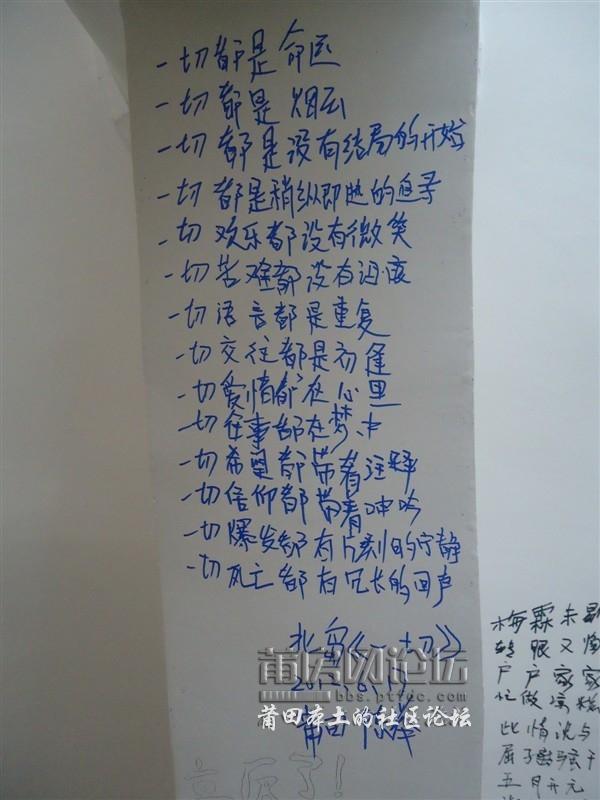 一切都是命运
一切都是烟云
一切都是没有结局的开始
一切都是稍纵即逝的追寻
一切欢乐都没有微笑
一切苦难都没有泪痕
一切语言都是重复
一切交往都是初逢
一切爱情都在心里
一切往事都在梦中
一切希望都带着注释
一切信仰都带着呻吟
一切爆发都有片刻的宁静
一切死亡都有冗长的回声
北岛《一切》
2012
莆田
莆房网论坛
bbs.ptfdc.com
莆田本土的社区论坛
了！
梅霖未
转眼又
户户家家
忙做
此情说与
屈子
五月开元